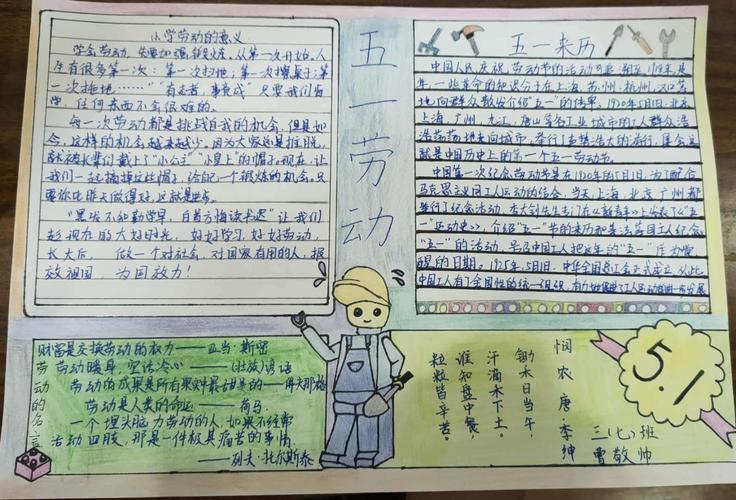 小学劳动的意义
学会劳动，先要加强锻炼。从第一次开始，人
生有很多第一次：第一次扫地；第一次擦桌子；第
一次拖地……"有志者，事竟成"只要我们肯
学，任何东西不会很难的。
每一次劳动都是挑战自我的机会，但是如
今，这样的机会越来越少。因为大家还是推脱，
就被长辈们戴上了"小公主""小皇上"的帽子。现在，让
我们一起摘掉这些帽子，给自己一个锻炼的机会。只
要你比昨天做得好，这就是进步。
"黑发不知勤学早，白首方悔读书迟"让我们
趁现在的大好时光，好好学习，好好劳动，
长大后，做一个对社会，对国家有用的人，报
效祖国，为国效力！
五一劳动
五一来历
中国人民庆祝劳动节的活动可追溯至1918年，是
年，一些革命的知识分子在上海、苏州、杭州、汉口等
地向群众散发介绍"五一"的传单。1920年5月1日，北京、
上海、广州、九江、唐山等各工业城市的工人群众浩
浩荡荡地走向城市，举行了声势浩大的游行、集会，这
就是中国历史上的第一个五一劳动节。
中国第一次纪念劳动节是在1920年的5月1日，为了配合
马克思主义同工人运动的结合，当天，上海，北京，广州都
举行了纪念活动，李大钊先生专门在《新青年》上发表了《"五
一"运动史》，介绍"五一"节的来历和美法等国工人纪念
"五一"的活动，号召中国工人把这年的"五一"作为觉
醒的日期。1925年，5月1日，中华全国总工会正式成立，从此
中国工人有了全国性的统一组织，有力地
财富是交换劳动的权力——亚当·斯密
劳动暖身，空话冷心——（壮族）谚语
劳动的成果是所有果实中最甜美的——
劳动是人类的命运——荷马
一个埋头脑力劳动的人，如果不经常
活动四肢，那是一件极其痛苦的事情。
——列夫·托尔斯泰
劳动的名言
悯农 唐 李绅
锄禾日当午，
汗滴禾下土。
谁知盘中餐，
粒粒皆辛苦。
5.1
三（七）班
曹敬帅